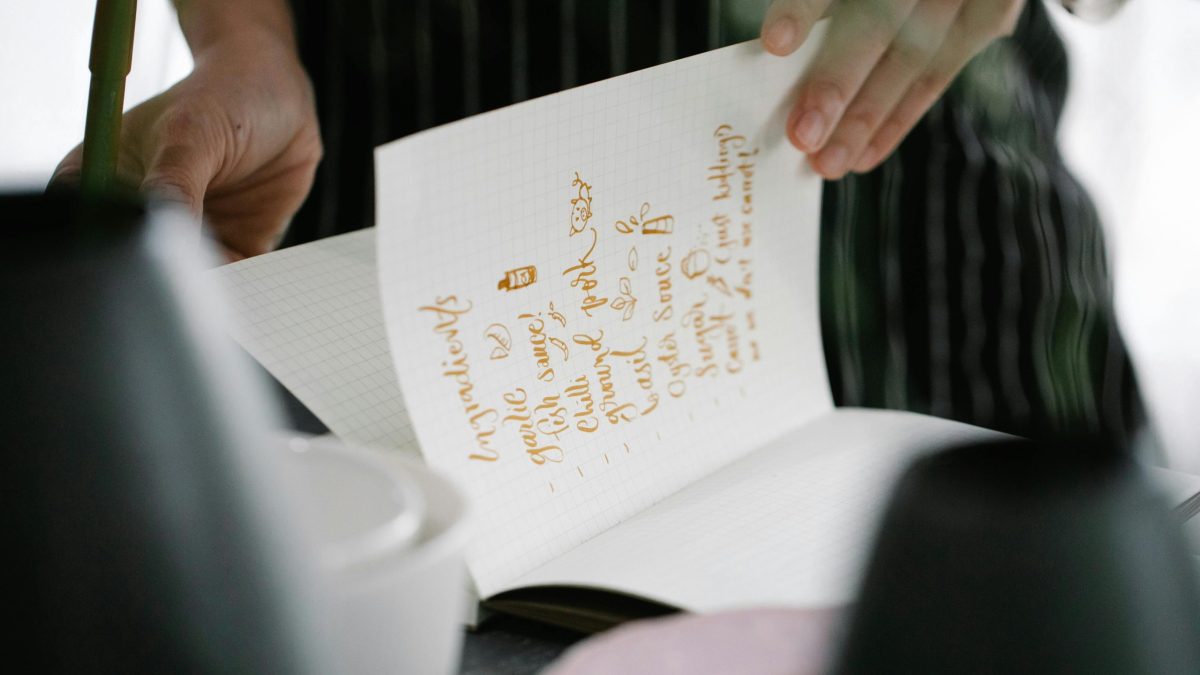 Ingradients
- garlic
- fish sauce!
- Chilli
- ground pork
- basil
- Oyster Souce
- Sugar
- Carrot (just kidding)
no we don't use carrot!